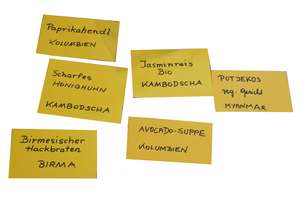 Paprikahendl
KOLUMBIEN
Scharfes
HONIGHUHN
KAMBODSCHA
Jasminreis
Bio
KAMBODSCHA
Birmesischer
Hackbraten
BIRMA
AVOCADO-SUPPE
KOLUMBIEN
MYANMAR